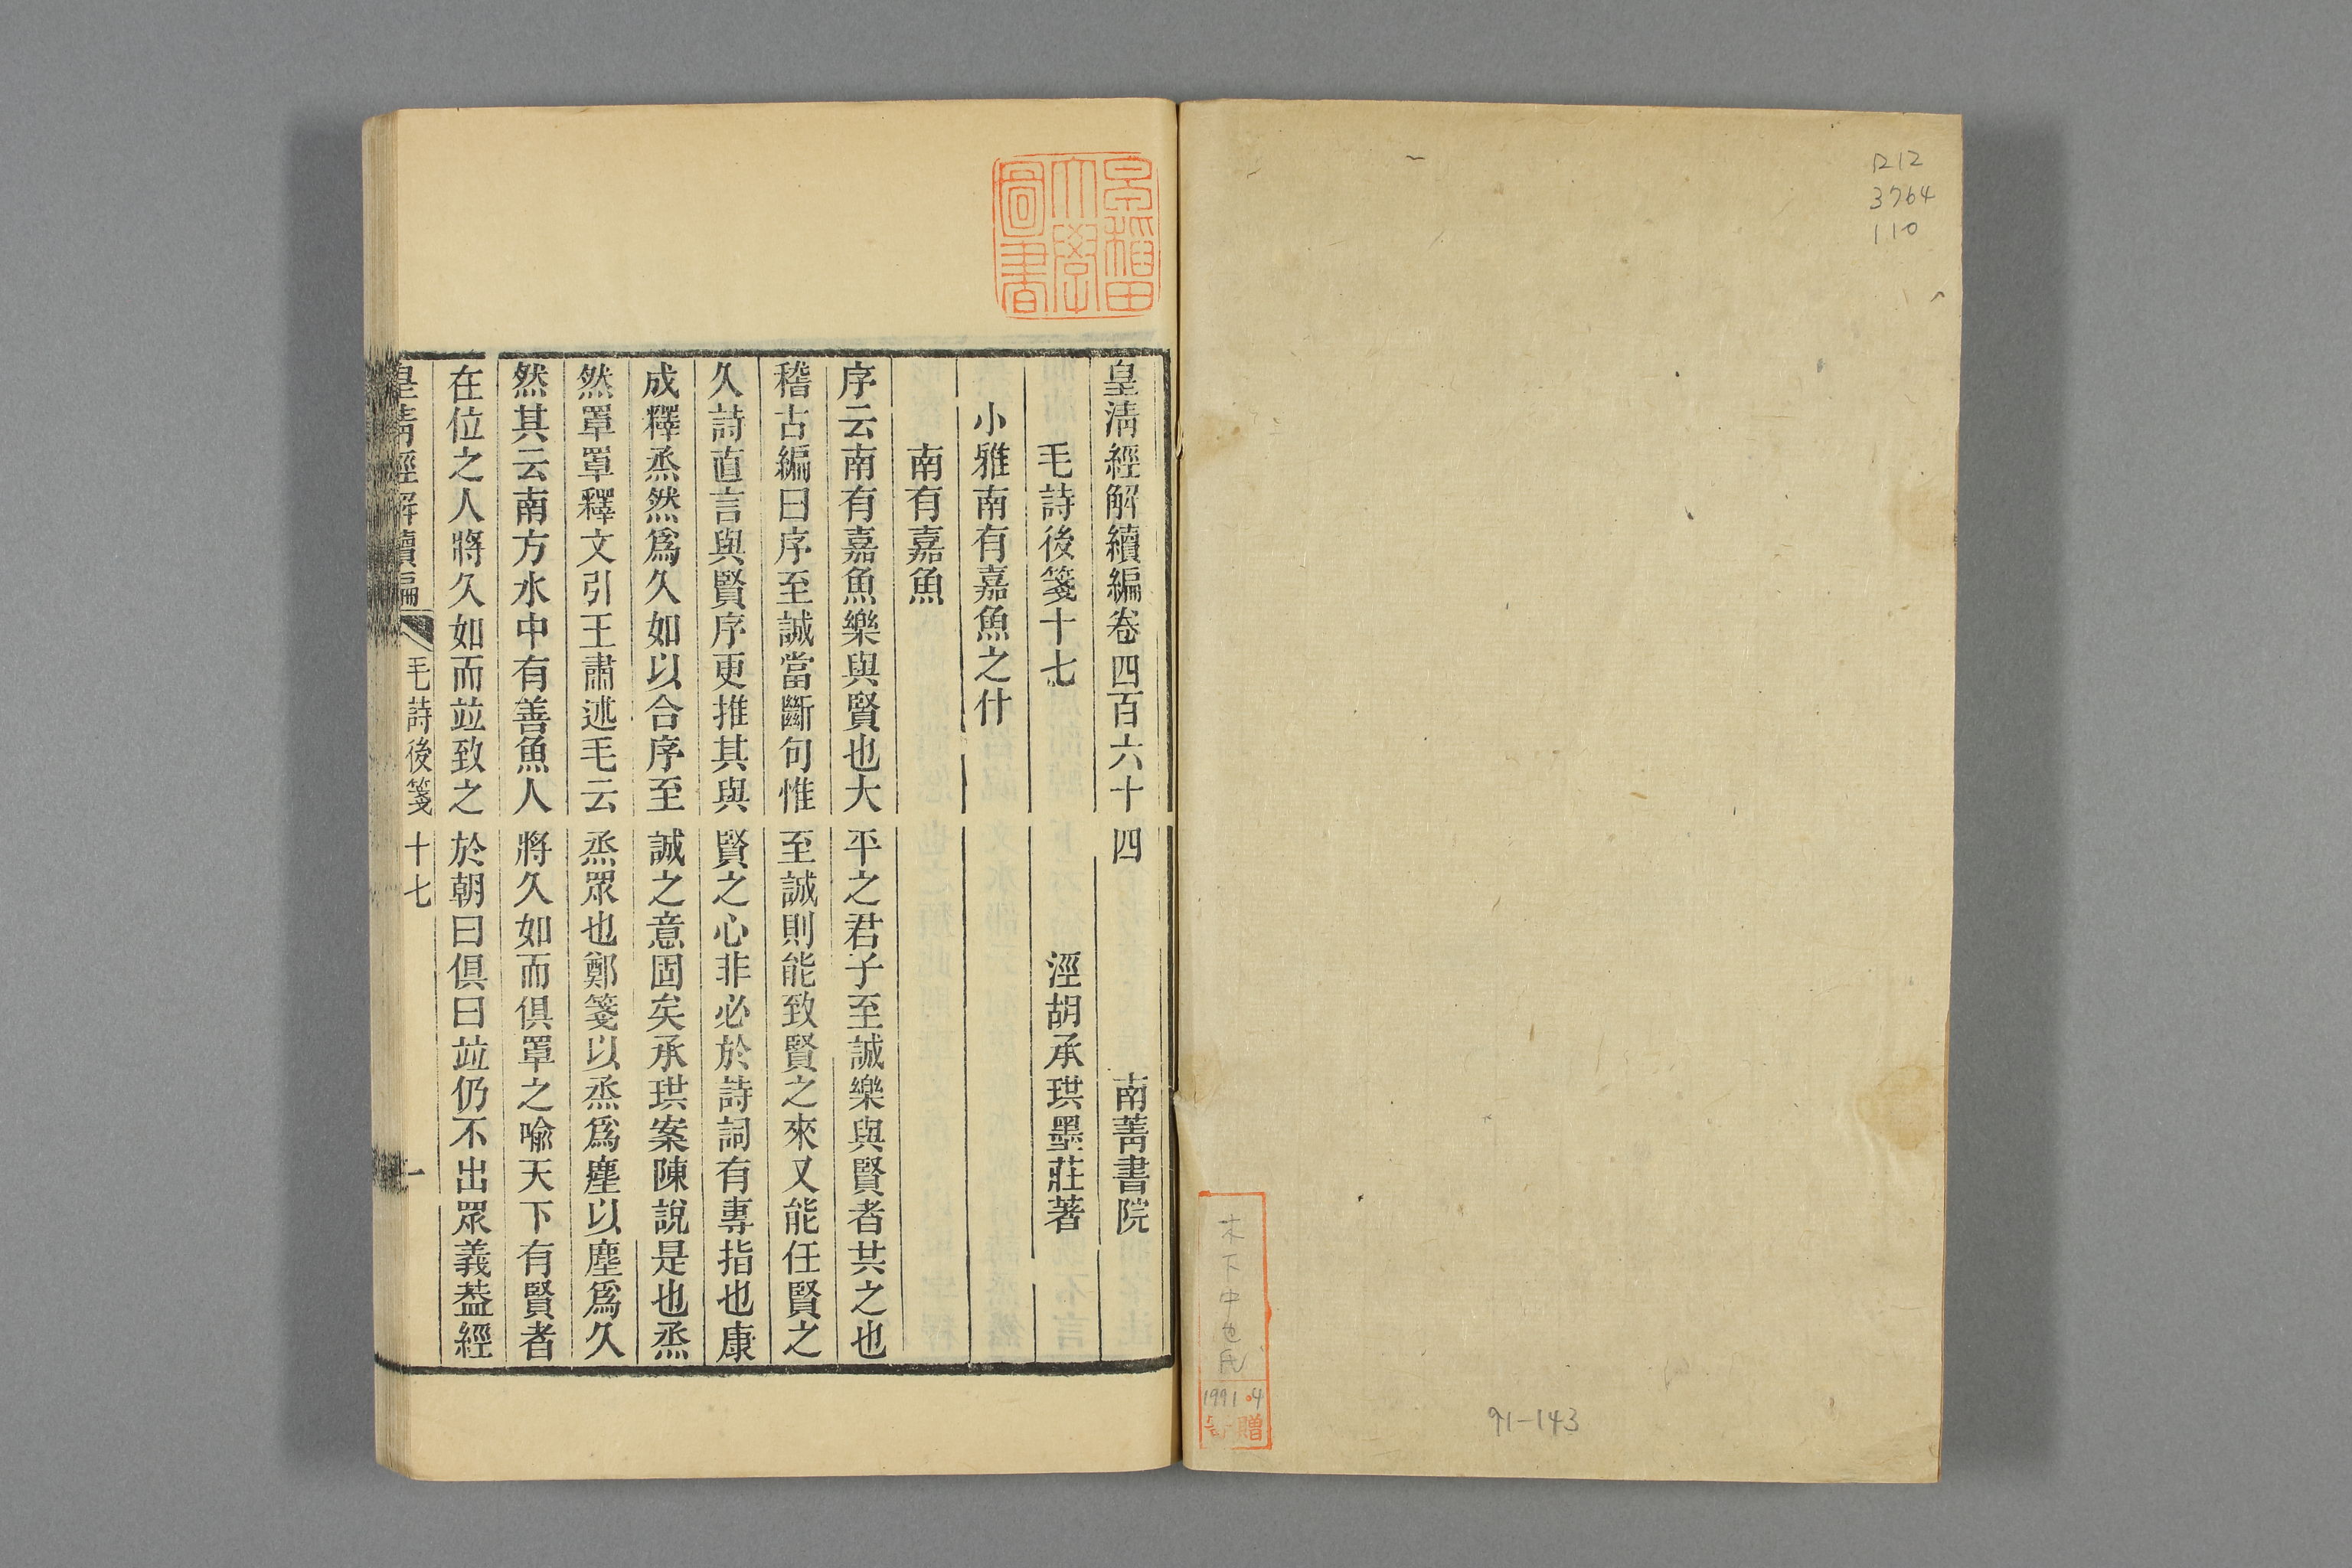 ロ12
3764
110
木下中也氏
1991.4
寄贈
91-143
早稲田
大學
圖書
皇清經解續編卷四百六十四 南菁書院
毛詩後箋十七 涇胡承珙墨莊著
小雅南有嘉魚之什
南有嘉魚
序云南有嘉魚樂與賢也大平之君子至誠樂與賢者共之也
稽古編曰序至誠當斷句惟至誠則能致賢之來又能任賢之
久詩直言與賢序更推其與賢之心非必於詩詞有專指也康
成釋烝然爲久如以合序至誠之意固矣承珙案陳說是也烝
然罩罩釋文引王肅述毛云烝眾也鄭箋以烝爲塵以塵爲久
然其云南方水中有善魚人將久如而俱罩之喻天下有賢者
在位之人將久如而竝致之於朝曰俱曰竝仍不出眾義葢經
皇清經解續編 毛詩後箋十七 一